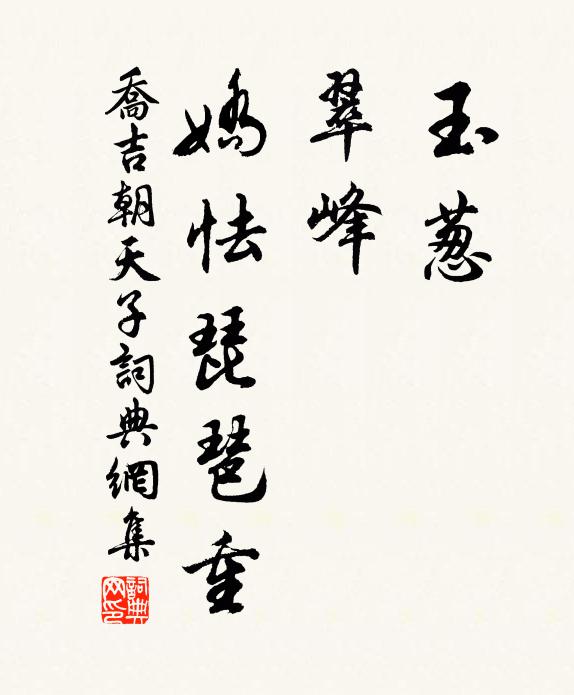 玉葱
翠峰
嬌怯琵琶重
喬吉朝天子詞典網集
詞典网印